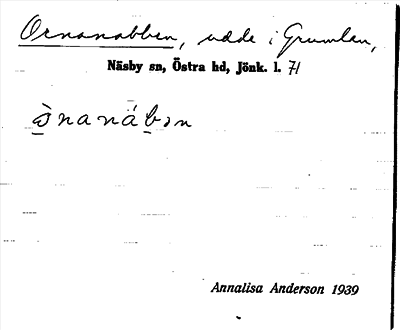 Ornanabben, udde i Grumlan,
Näsby sn, Östra hd, Jönk. l. 71
Annalisa Anderson 1939